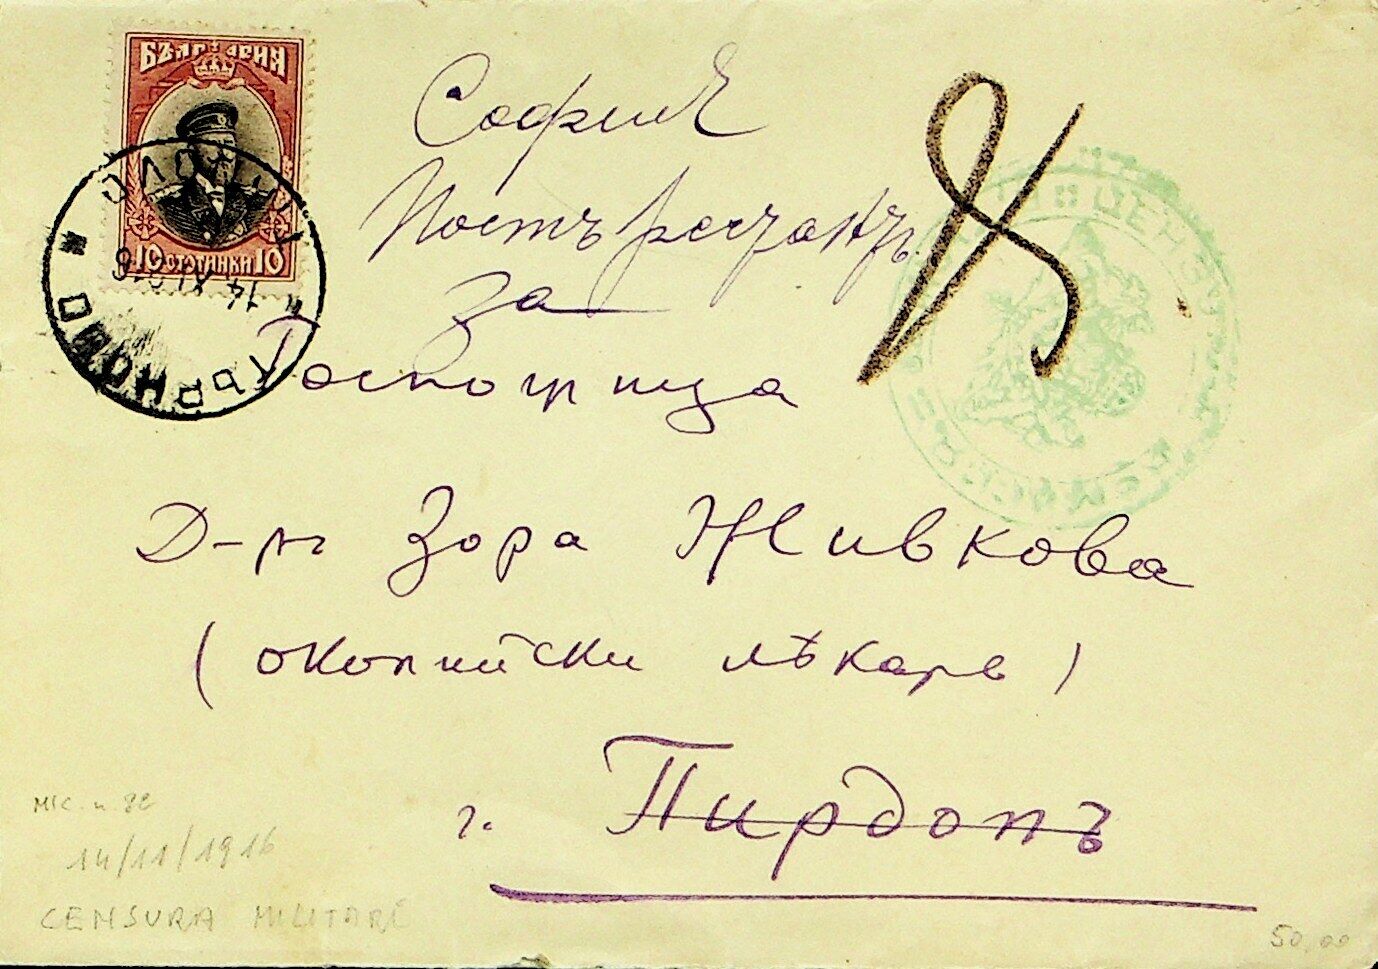 БЪЛГАРИЯ
10 СТОТИНКИ 10
София
Постъ рестантъ
За
Госпогица
Д-ръ Зора Живкова
(околийски лѣкарь)
г. Пирдопъ
MIC. n. 82
14/11/1916
CENSURA MILITARE
50,00